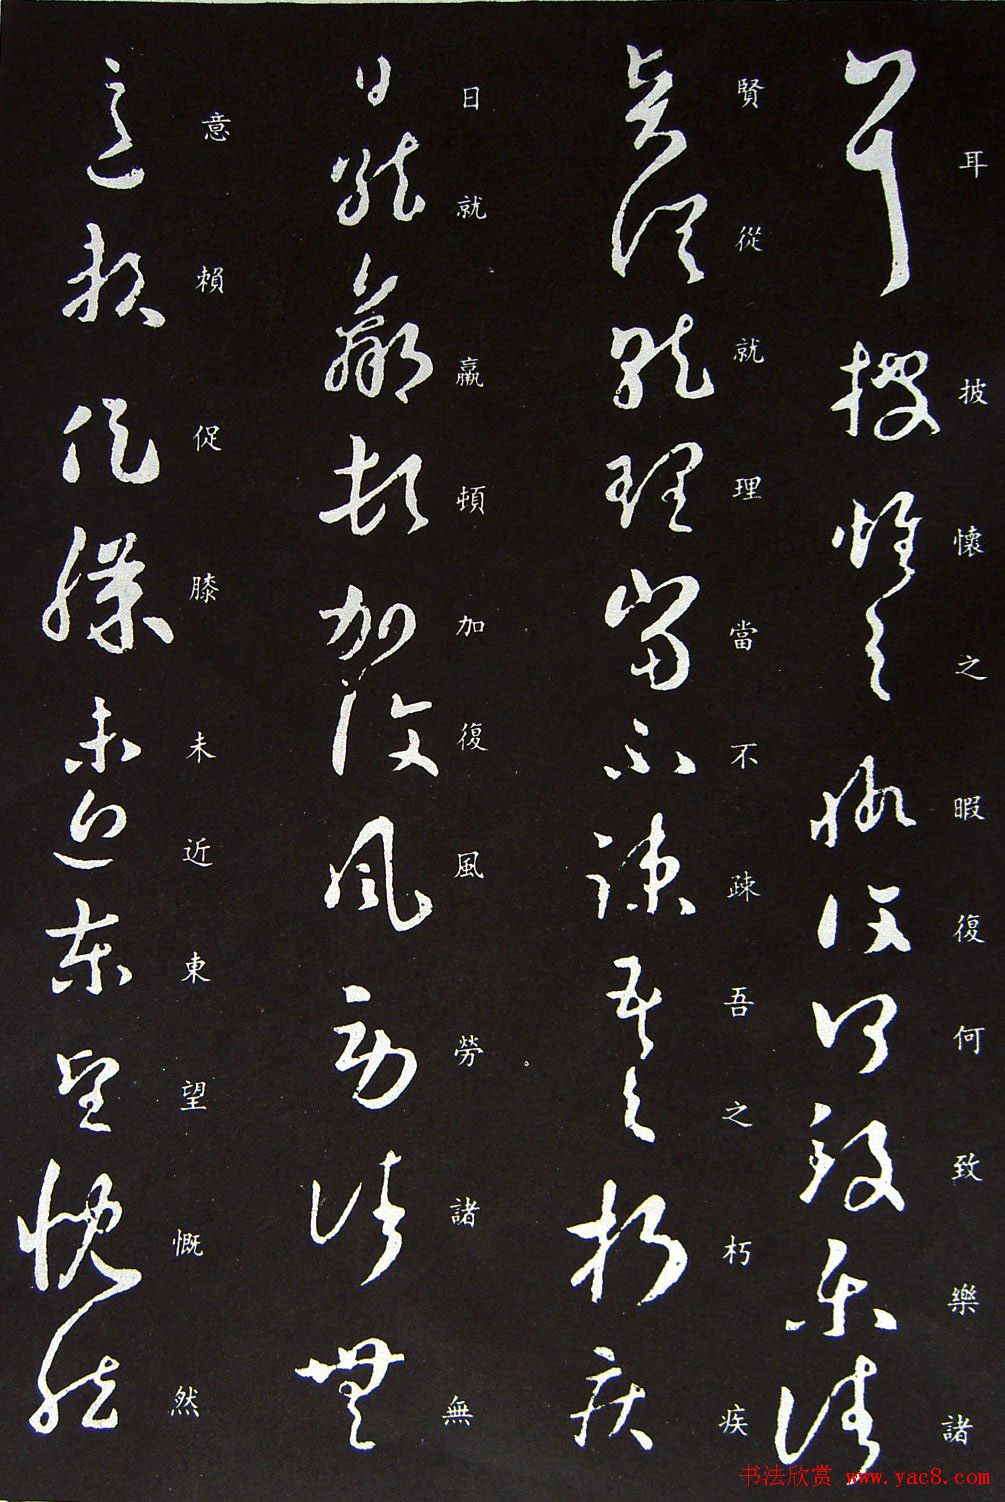 耳披懷之暇復何致樂諸
賢從就理當不疎吾之朽疾
日就羸頓加復風勞諸無
意賴促膝未近東望慨然
书法欣赏 www.yac8.com